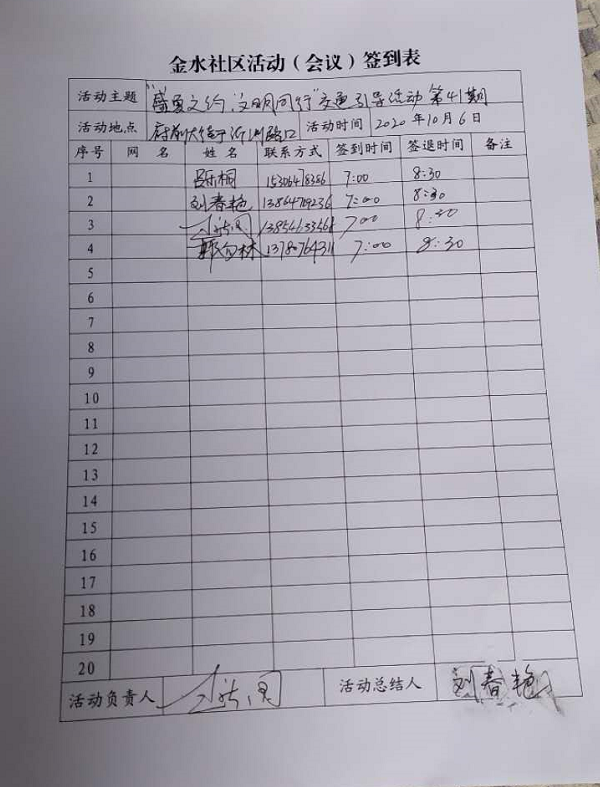 金水社区活动（会议）签到表
活动主题 "盛夏之约 文明同行"交通引导活动 第41期
活动地点 府前大街于 路口 活动时间 2020年10月6日
序号 网 名 姓 名 联系方式 签到时间 签退时间 备注
1 吕桐 15306478386 7:00 8:30
2 刘春艳 13864709236 7:00 8:30
3 7:00 8:30
4 郭向林 1378076431 7:00 8:30
5
6
7
8
9
10
11
12
13
14
15
16
17
18
19
20
活动负责人 活动总结人 刘春艳